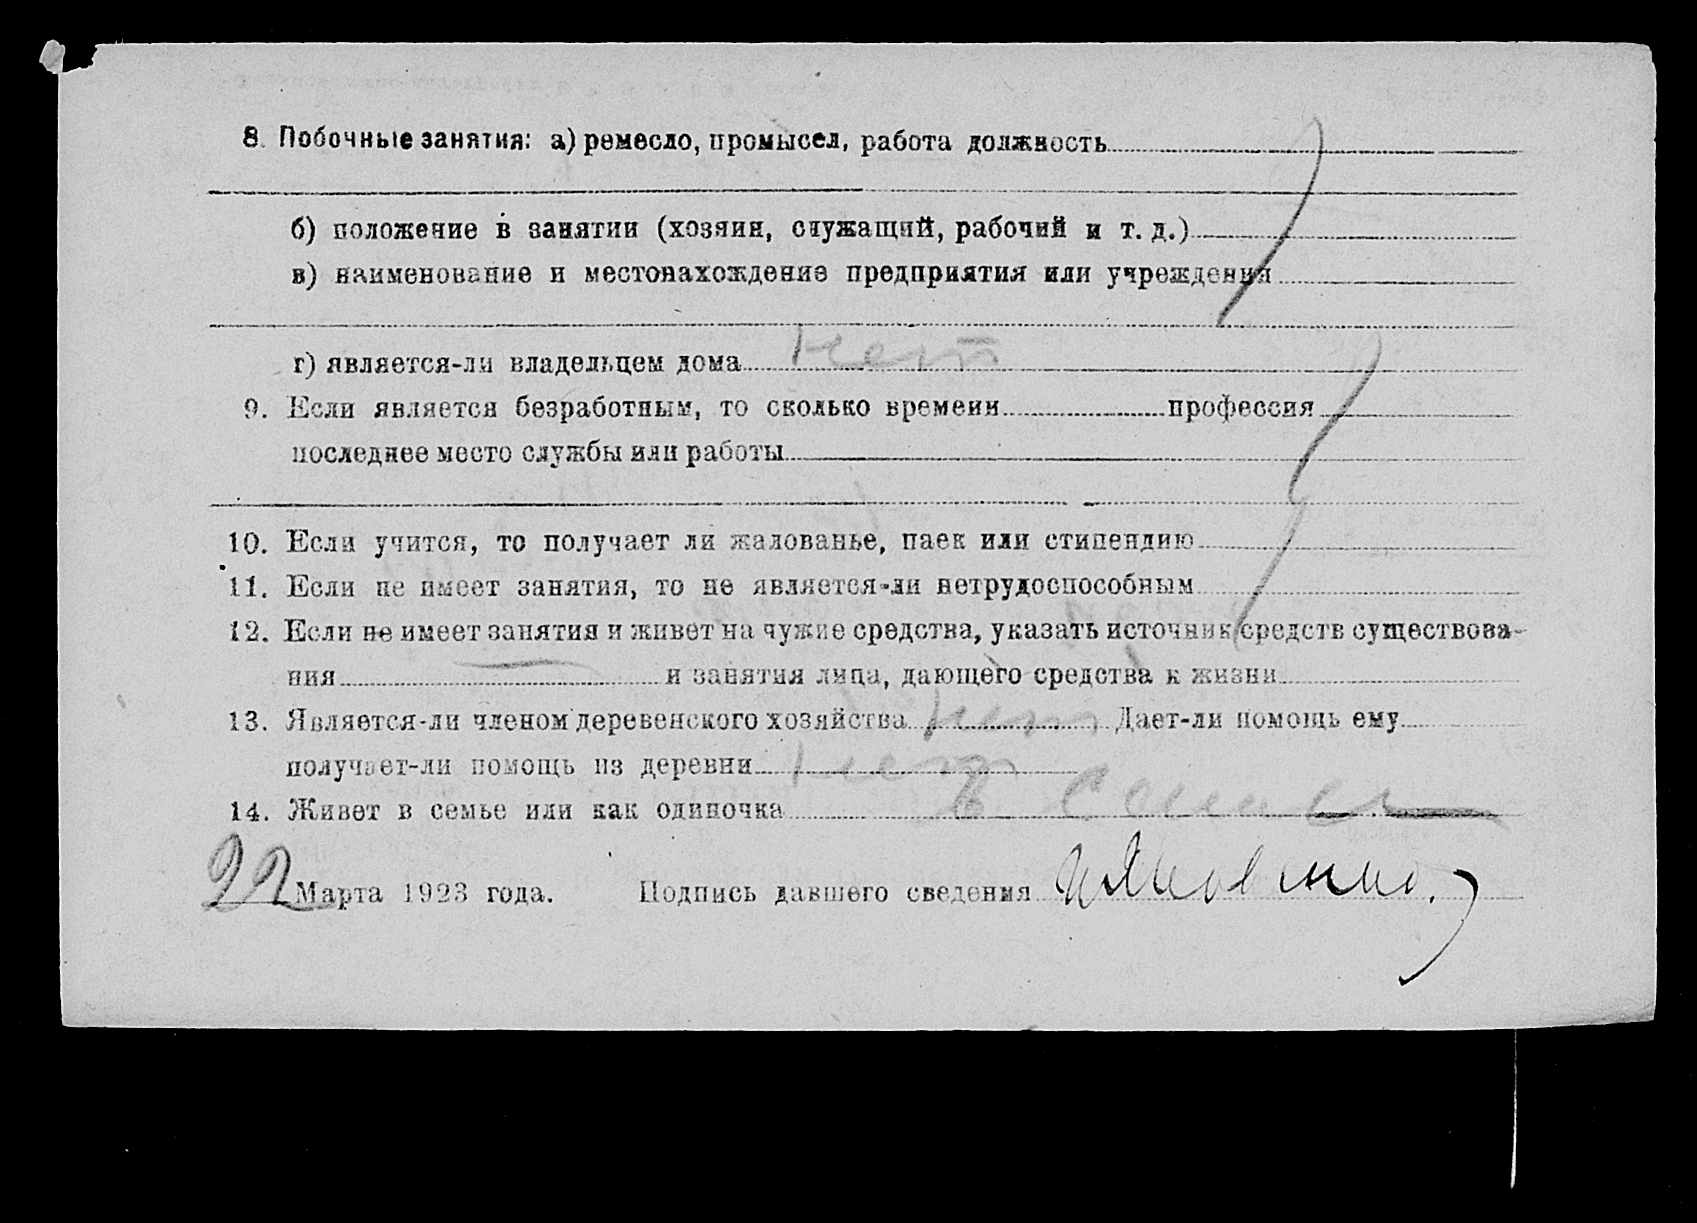 8. Побочные занятия: а) ремесло, промысел, работа должность
б) положение в занятии (хозяин, служащий, рабочий и т. д.)
в) наименование и местонахождение предприятия или учреждения
г) является-ли владельцем дома нет
9. Если является безработным, то сколько времени профессия
последнее место службы или работы
10. Если учится, то получает ли жалованье, паек или стипендию
11. Если не имеет занятия, то не является-ли нетрудоспособным
12. Если не имеет занятия и живет на чужие средства, указать источник средств существова-
ния — и занятия лица, дающего средства к жизни
13. Является-ли членом деревенского хозяйства нет Дает-ли помощь ему
получает-ли помощь из деревни нет
14. Живет в семье или как одиночка в семье
22 Марта 1923 года. Подпись давшего сведения